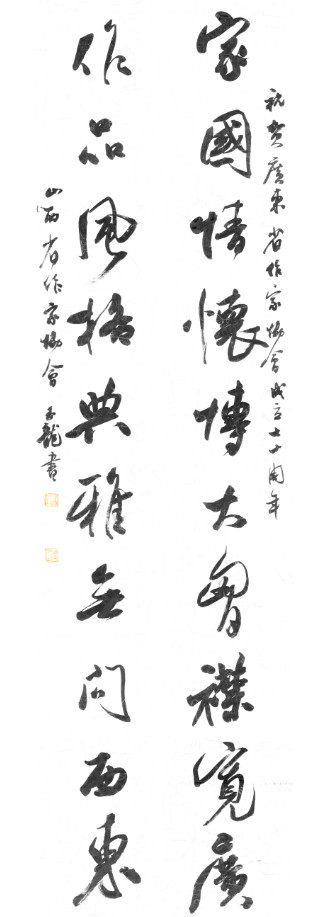 祝賀廣東省作家協會成立七十周年
家國情懷博大胸襟寬廣
作品風格典雅無問西東
山西省作家協會 龍書